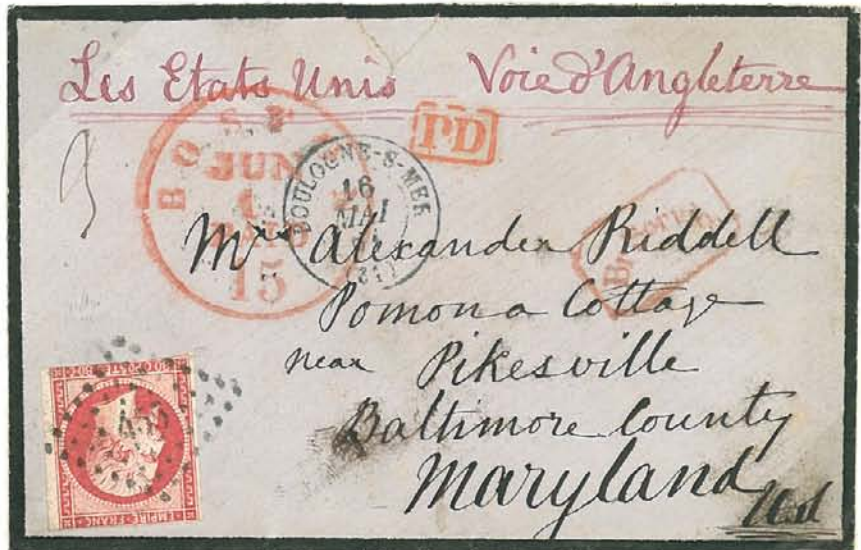 Les Etats Unis Voie d'Angleterre
PD
JUN
PAID
15
BOULOGNE-S-MER
16
MAI
Mrs Alexander Riddell
Pomona Cottage
near Pikesville
Baltimore County
Maryland
80 C POSTES 80 C
EMPIRE FRANC